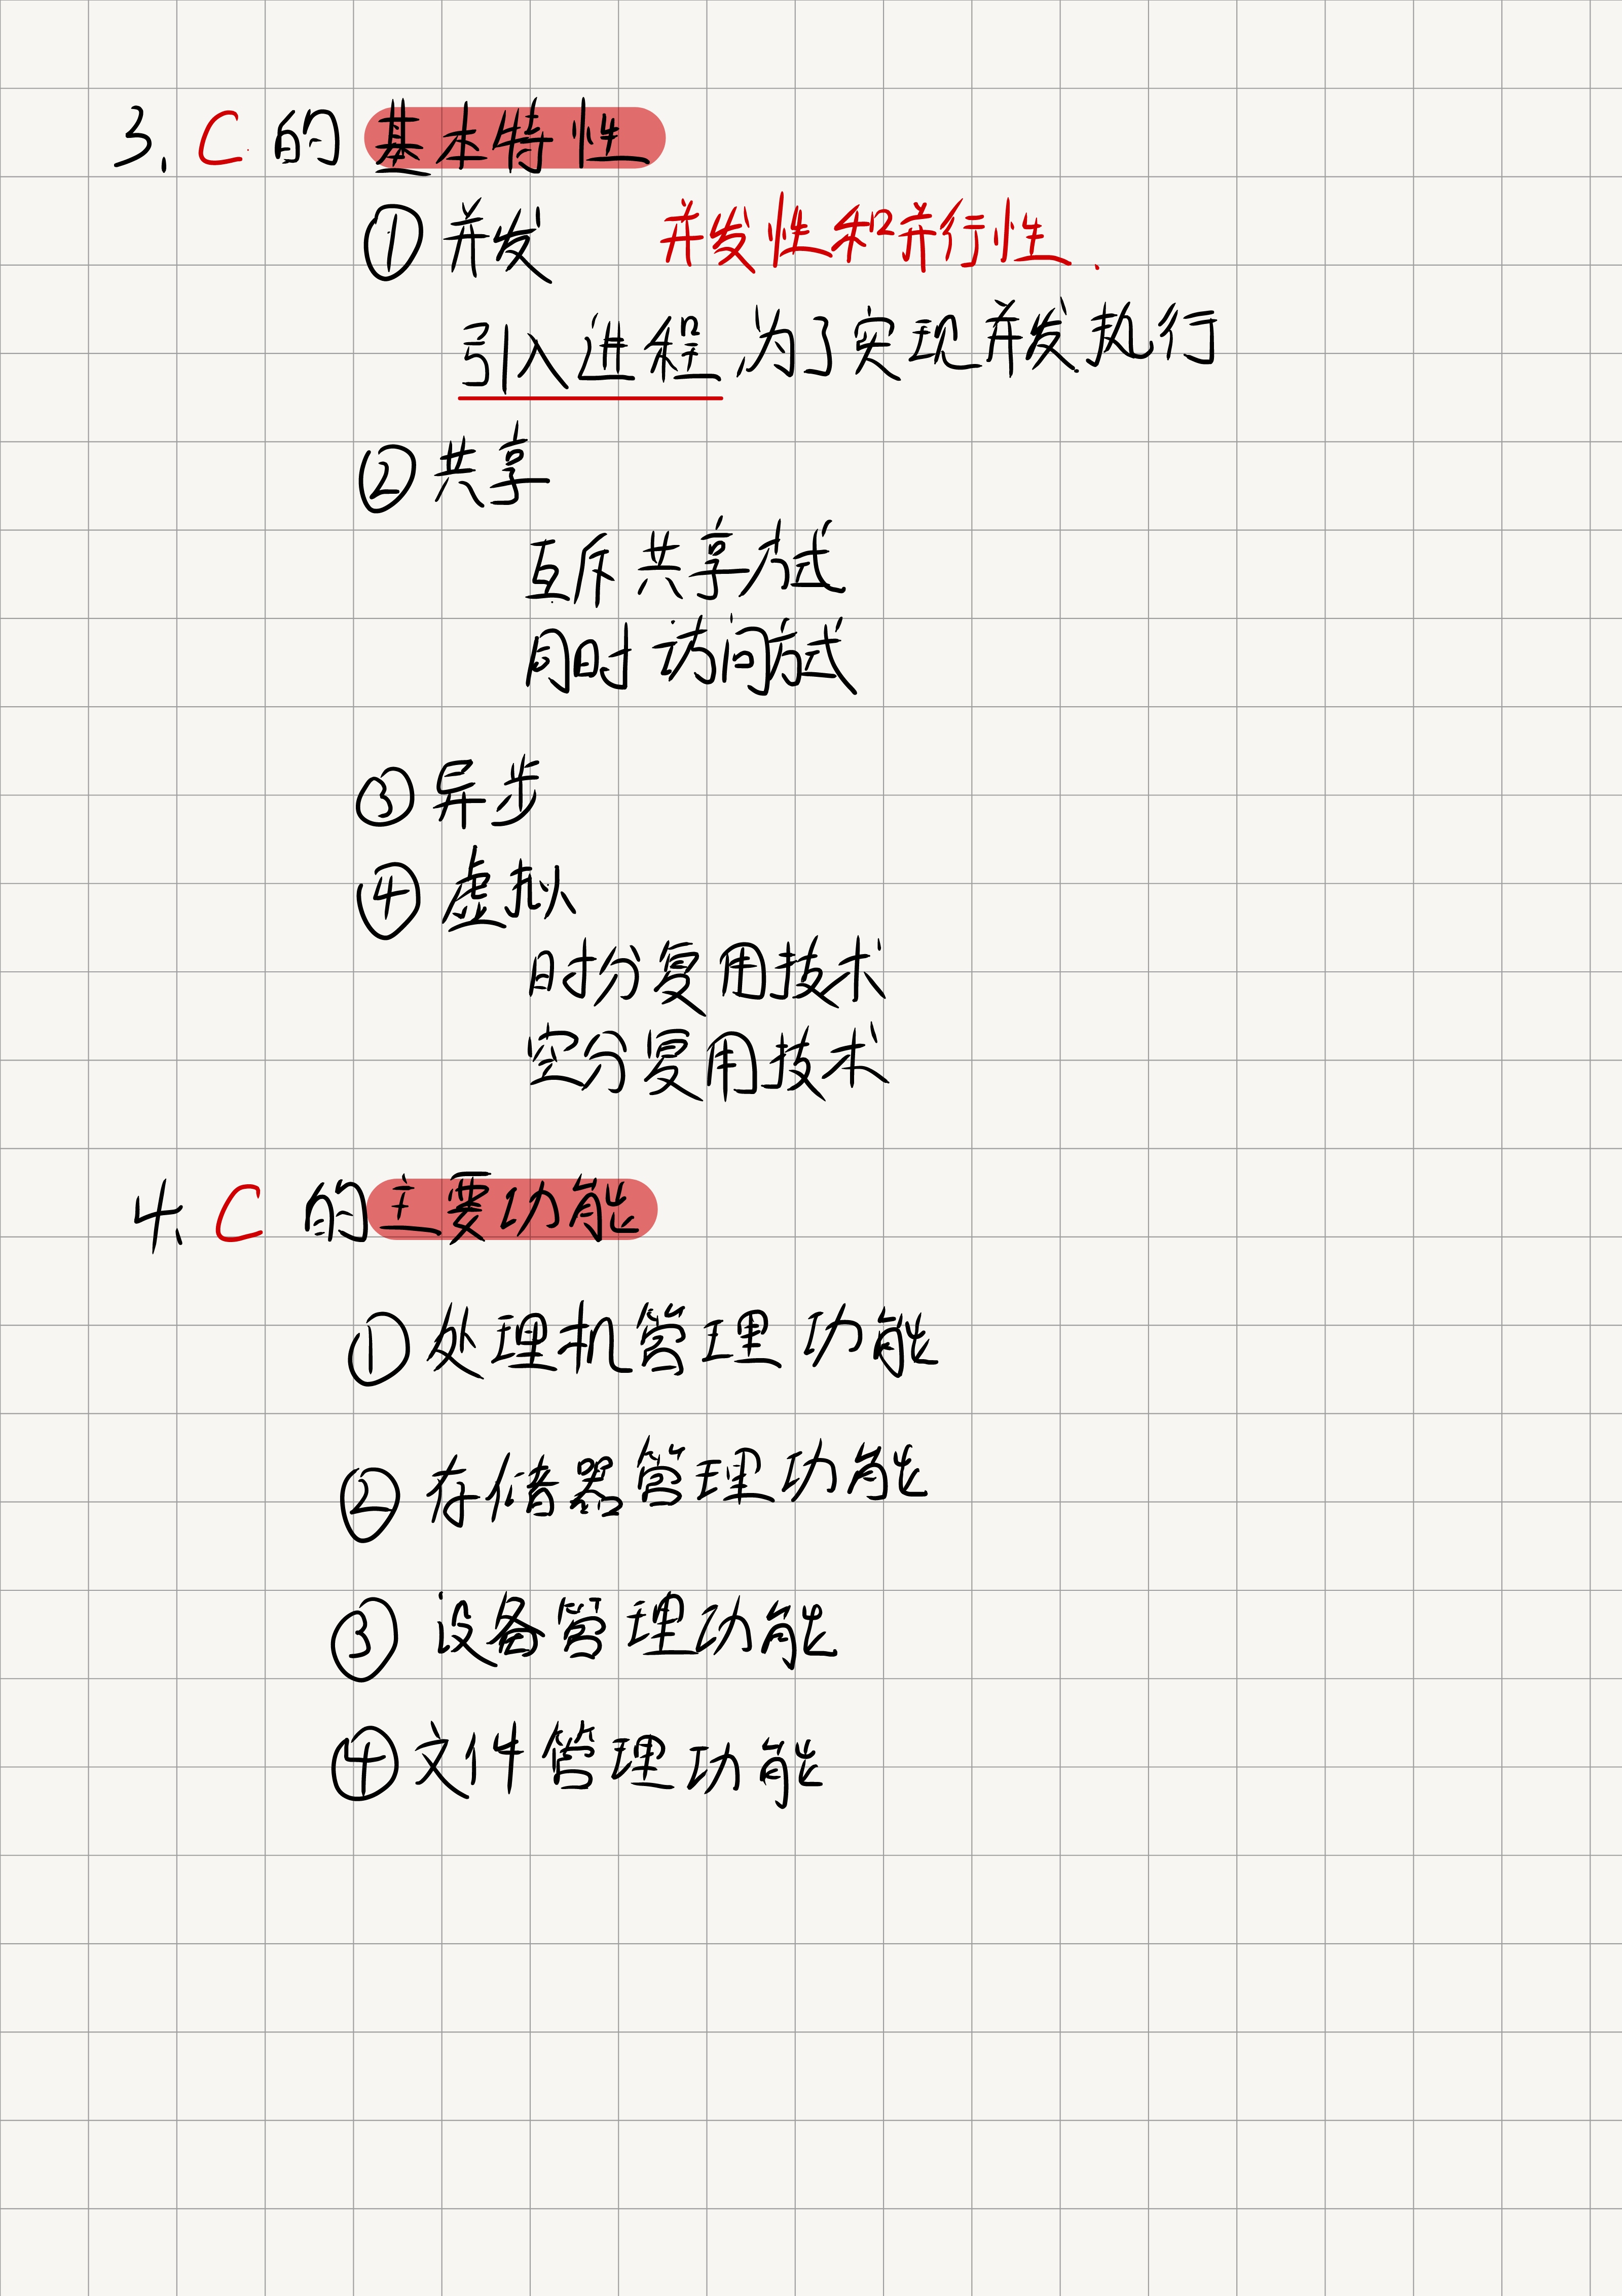 3. C 的 基本特性
① 并发 并发性和并行性.
引入进程,为了实现并发执行
② 共享
互斥共享方式
同时访问方式
③ 异步
④ 虚拟
时分复用技术
空分复用技术
4. C 的主要功能
① 处理机管理功能
② 存储器管理功能
③ 设备管理功能
④ 文件管理功能